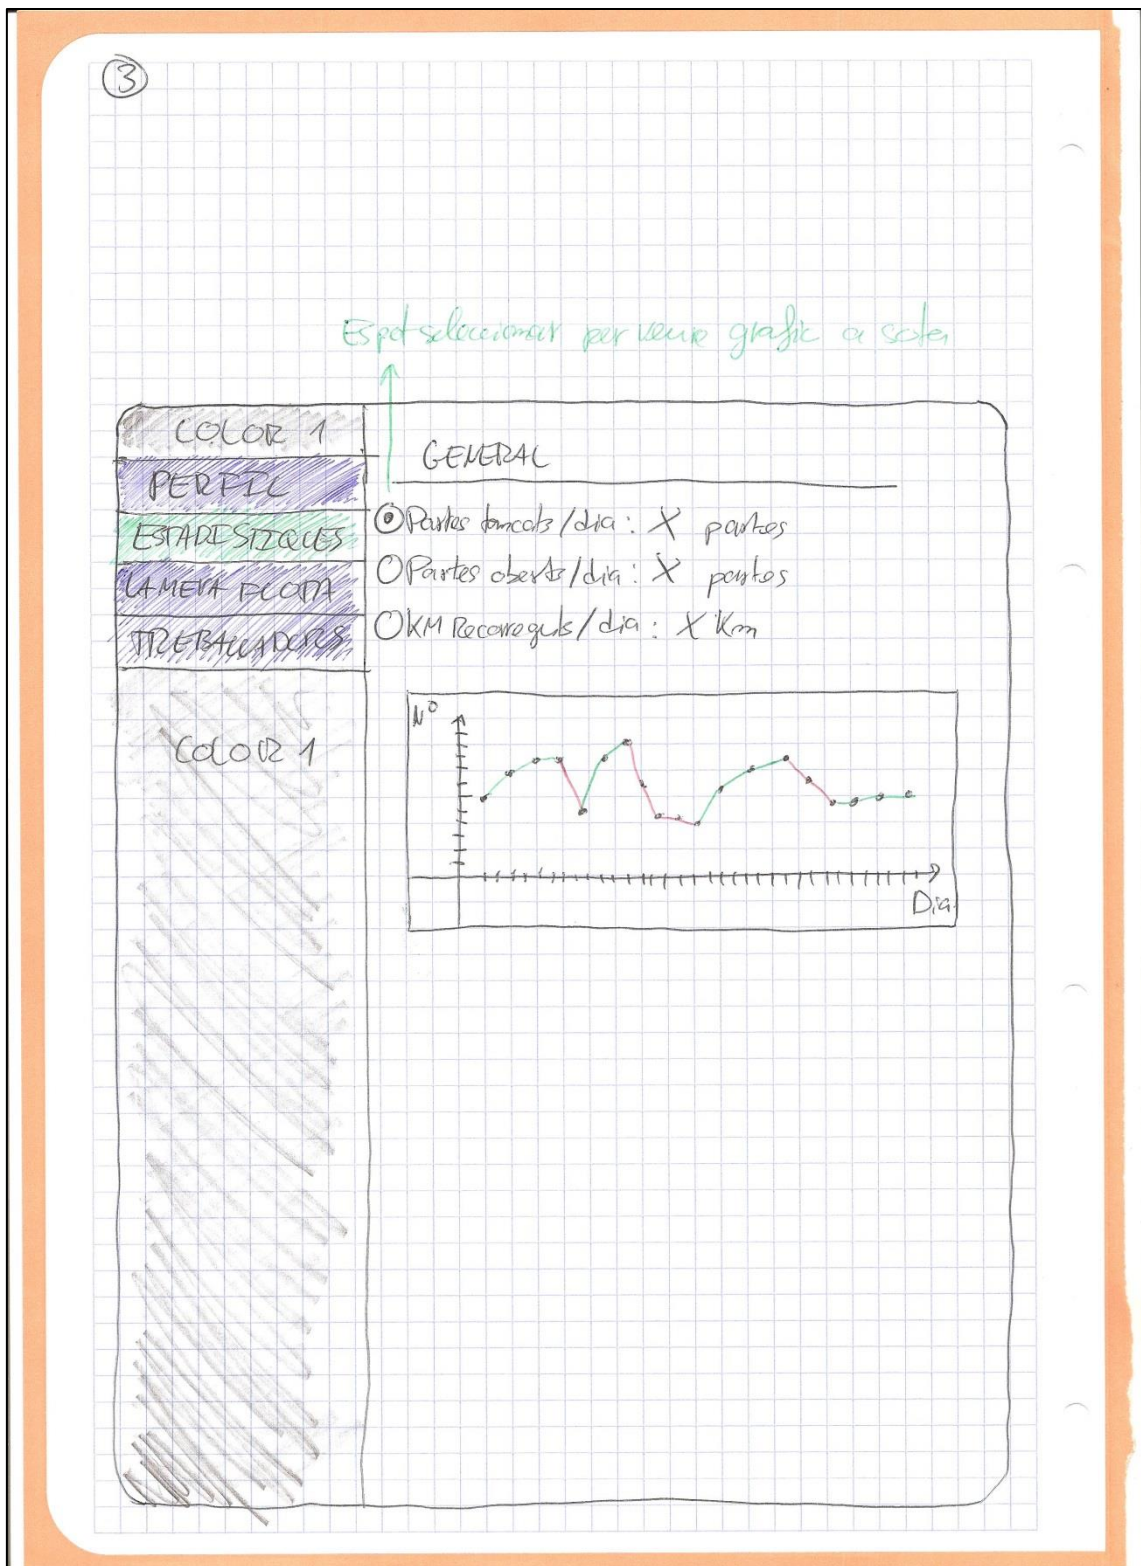 3
Es pot seleccionar per veure grafic a sota
COLOR 1
PERFIL
ESTADISTIQUES
LA MEVA FLOTA
TREBALLADORS
COLOR 1
GENERAL
Partes tancats/dia: X partes
Partes oberts/dia: X partes
KM Recorreguts/dia: X Km
Nº
Dia